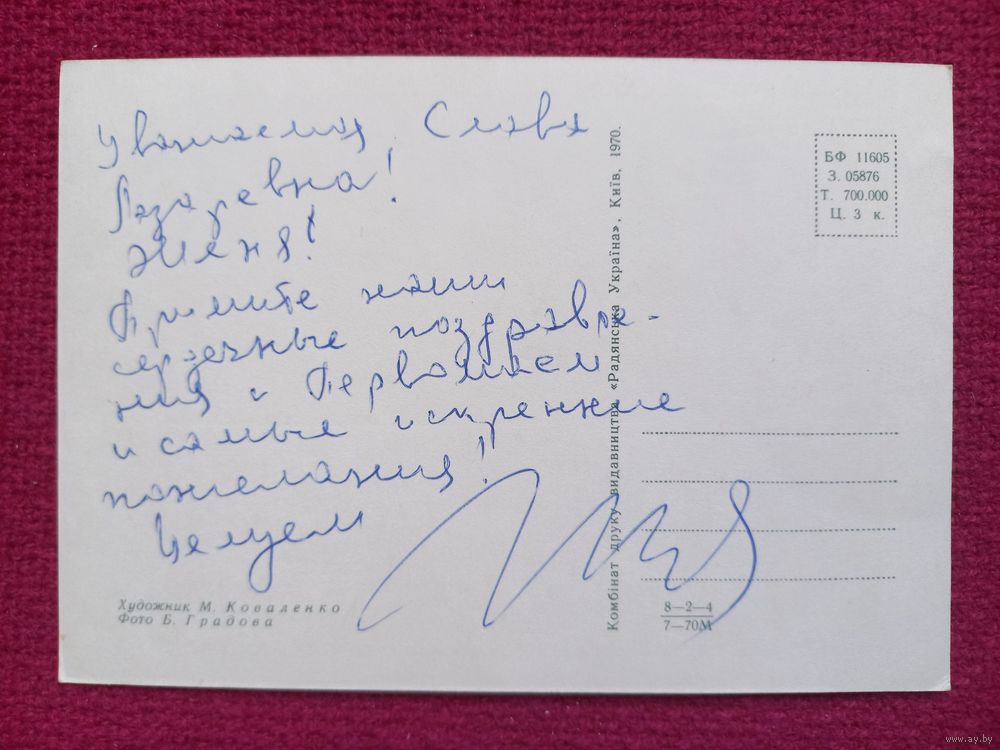 Уважаемая Слава
Лазаревна!
Женя!
Примите наши
сердечные поздравле-
ния с Первомаем
и самые искренние
пожелания!
Целуем
Художник М. Коваленко
Фото Б. Градова
Комбінат друку видавництва «Радянська Україна», Київ, 1970.
БФ 11605
З. 05876
Т. 700.000
Ц. 3 к.
8—2—4
7—70М
www.ay.by